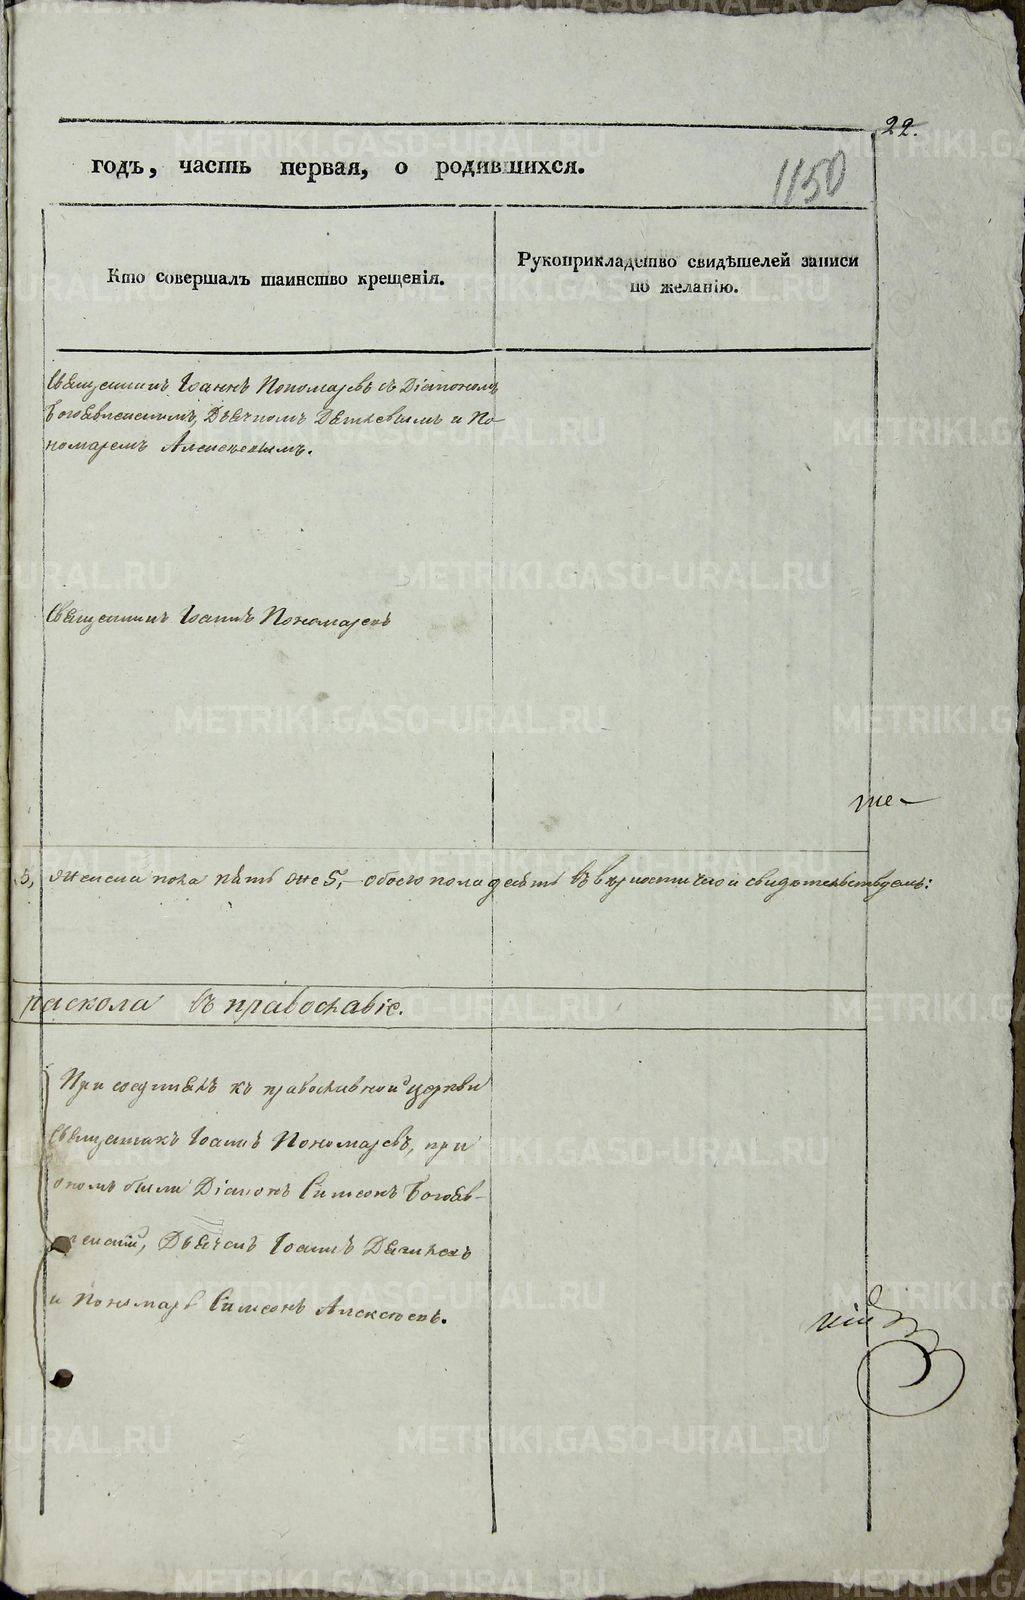 22.
годъ, часть первая, о родившихся.
1150
Кто совершалъ таинство крещенія.
Рукоприкладство свидѣтелей записи
по желанію.
Священникъ Іоаннъ Пономаревъ съ Діакономъ
Богоявленскимъ, Дьячкомъ и По-
номаремъ Алексѣевымъ.
Священникъ Іоаннъ Пономаревъ
же
5, женска пола пять же 5, обоего пола десять въ вѣрности чего и свидѣтельствуемъ:
раскола въ православіе.
Присоединялъ къ православной церкви
Священникъ Іоаннъ Пономаревъ, при
были Діаконъ Симеонъ Богояв-
ленскій, Дьячекъ Іоаннъ
и пономарь Симеонъ Алексѣевъ.
METRIKI.GASO-URAL.RU